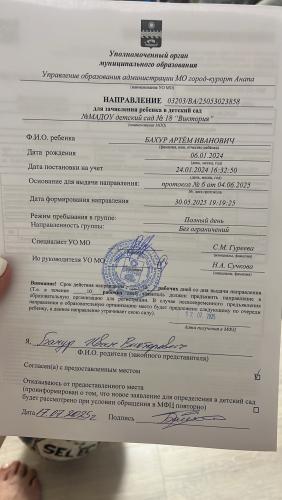 Уполномоченный орган
муниципального образования
Управление образования администрации МО город-курорт Анапа
(наименование УО МО)
НАПРАВЛЕНИЕ 03203/ВА/25053023858
для зачисления ребенка в детский сад
№МАДОУ детский сад № 18 "Виктория"
(наименование ОО)
Ф.И.О. ребенка БАХУР АРТЁМ ИВАНОВИЧ
Дата рождения 06.01.2024
(день, месяц, год)
Дата постановки на учет 24.01.2024 16:32:50
(день, месяц, год)
Основание для выдачи направления: протокол № 6 от 04.06.2025
Дата формирования направления 30.05.2025 19:19:25
Режим требования в группе: Полный день
Направленность группы: Без ограничений
Специалист УО МО С.М. Гуреева
Ио руководителя УО МО Н.А. Сучкова
Внимание! Срок действия направления рабочих дней со дня выдачи направления
(Т.е. в течение 10 рабочих дней заявитель должен предъявить направление в
образовательную организацию для регистрации. В случае несвоевременного предъявления
направления в образовательную организацию место будет предложено следующему по очереди
ребенку, а данное направление утрачивает свою силу).
Дата получения в МФЦ
Я, Бахур Иван Викторович
Ф.И.О. родителя (законного представителя)
Согласен(а) с предоставленным местом
Отказываюсь от предоставленного места
(проинформирован о том, что новое заявление для определения в детский сад
будет рассмотрено при условии обращения в МФЦ повторно)
Дата 17.07.2025г Подпись